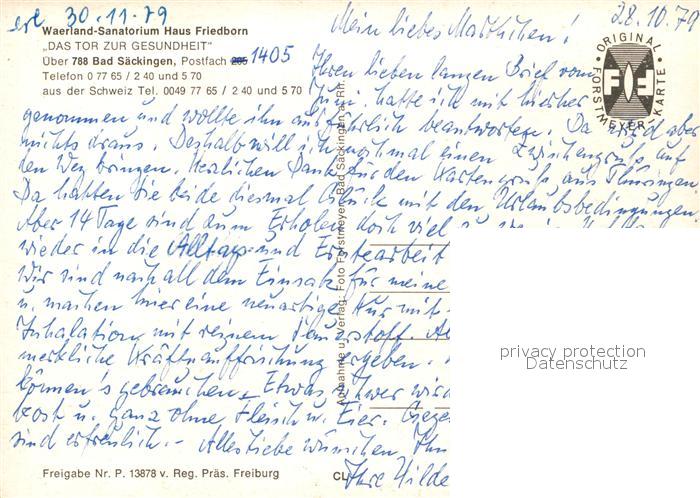 erl 30.11.79
28.10.79
Waerland-Sanatorium Haus Friedborn
„DAS TOR ZUR GESUNDHEIT"
Über 788 Bad Säckingen, Postfach 205 1405
Telefon 0 77 65 / 2 40 und 5 70
aus der Schweiz Tel. 0049 77 65 / 2 40 und 5 70
ORIGINAL FORSTMEYER KARTE
Mein liebes!
Ihren lieben langen Brief vom
Juni hatte ich mit hierher
genommen und wollte ihn ausführlich beantworten. Da wird aber
nichts draus. Deshalb will ich nochmal einen Zwischengruß auf
den Weg bringen. Herzlichen Dank für den Kartengruß aus Thüringen.
Da hatten Sie beide diesmal mit den Urlaubsbedingungen
aber 14 Tage sind zum Erholen doch viel zu
wieder in die Alltag- und Erntearbeit
Wir sind nach all dem Einsatz für meine
u. machen hier eine neuartige Kur mit
Inhalation mit reinem Sauerstoff.
merkliche Kräfteauffrischung ergeben.
können's gebrauchen. Etwas schwer wird
kost u. ganz ohne Fleisch u. Eier.
sind erfreulich. - Alles Liebe wünschen Ihn
Ihre Hilde
Aufnahme u. Verlag: Foto Forstmeyer, Bad Säckingen a. Rh.
Freigabe Nr. P. 13878 v. Reg. Präs. Freiburg
CL
privacy protection
Datenschutz